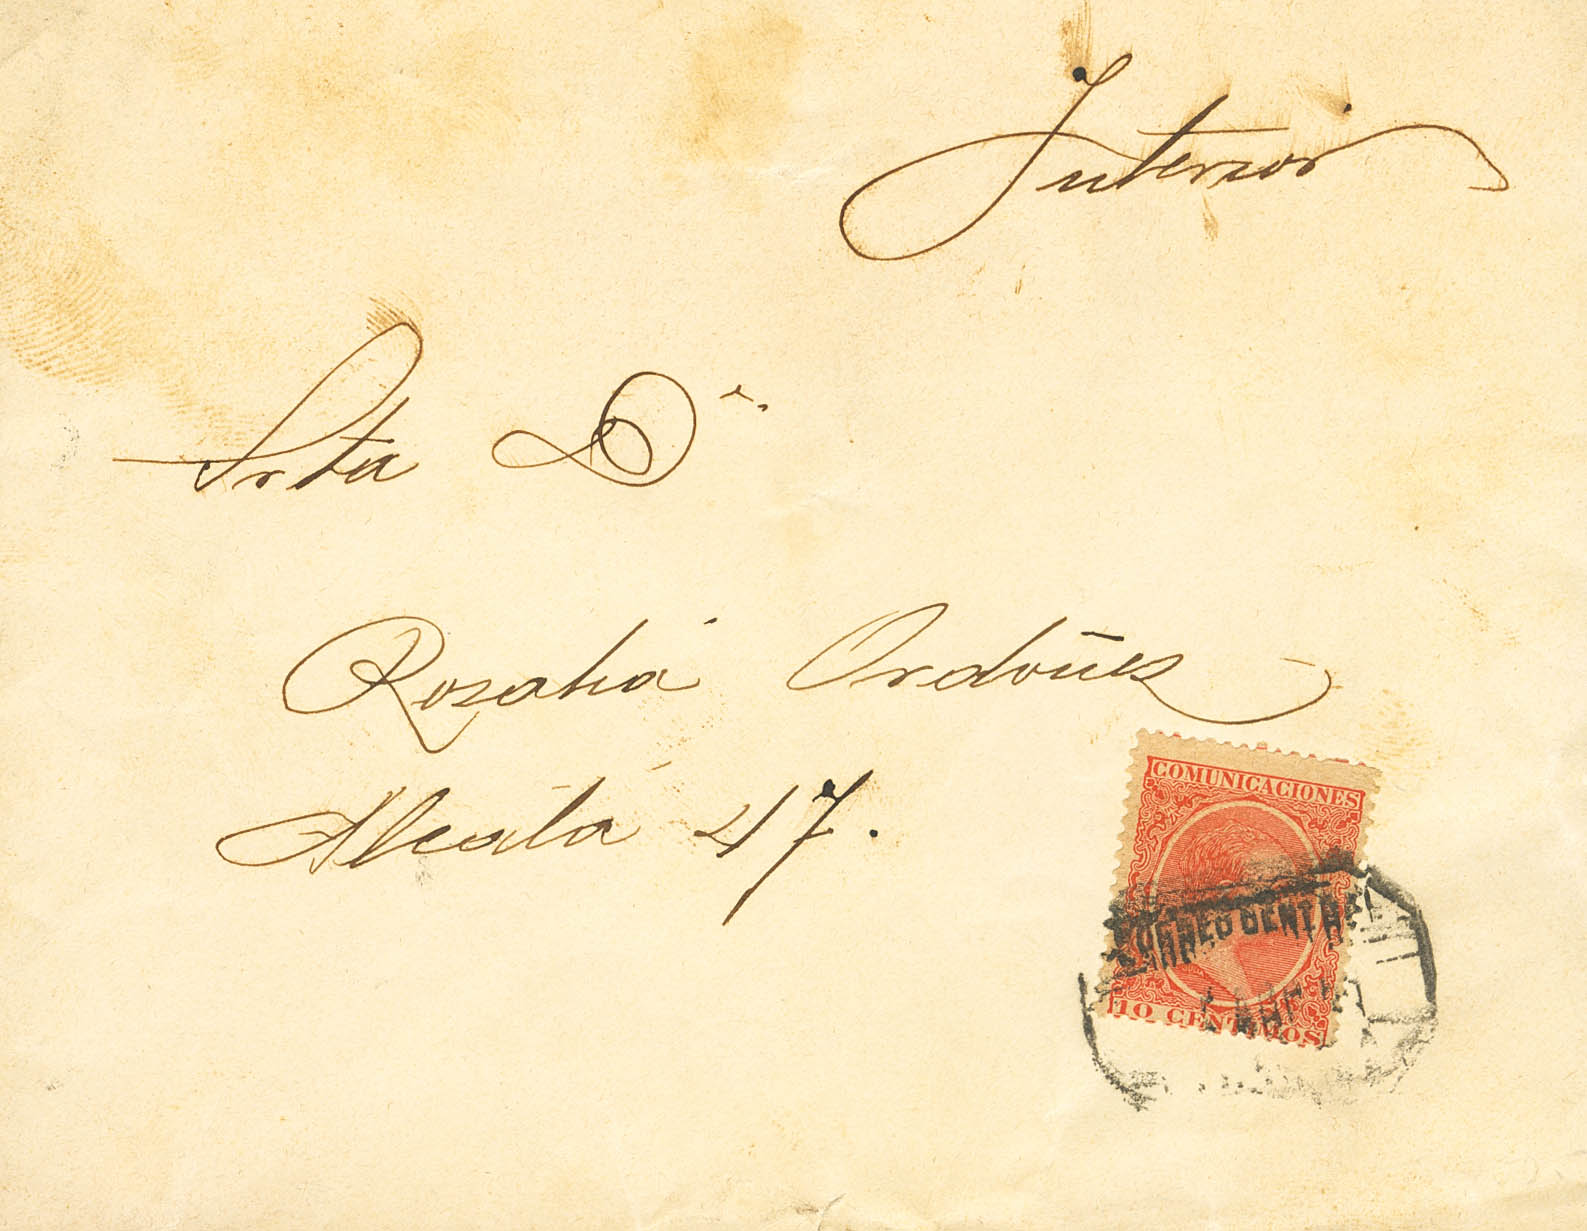 Interior
Srta Dª.
Rosalia Ordóñez
Alcalá 47.
COMUNICACIONES
CORREO CENTRAL
10 CENTIMOS